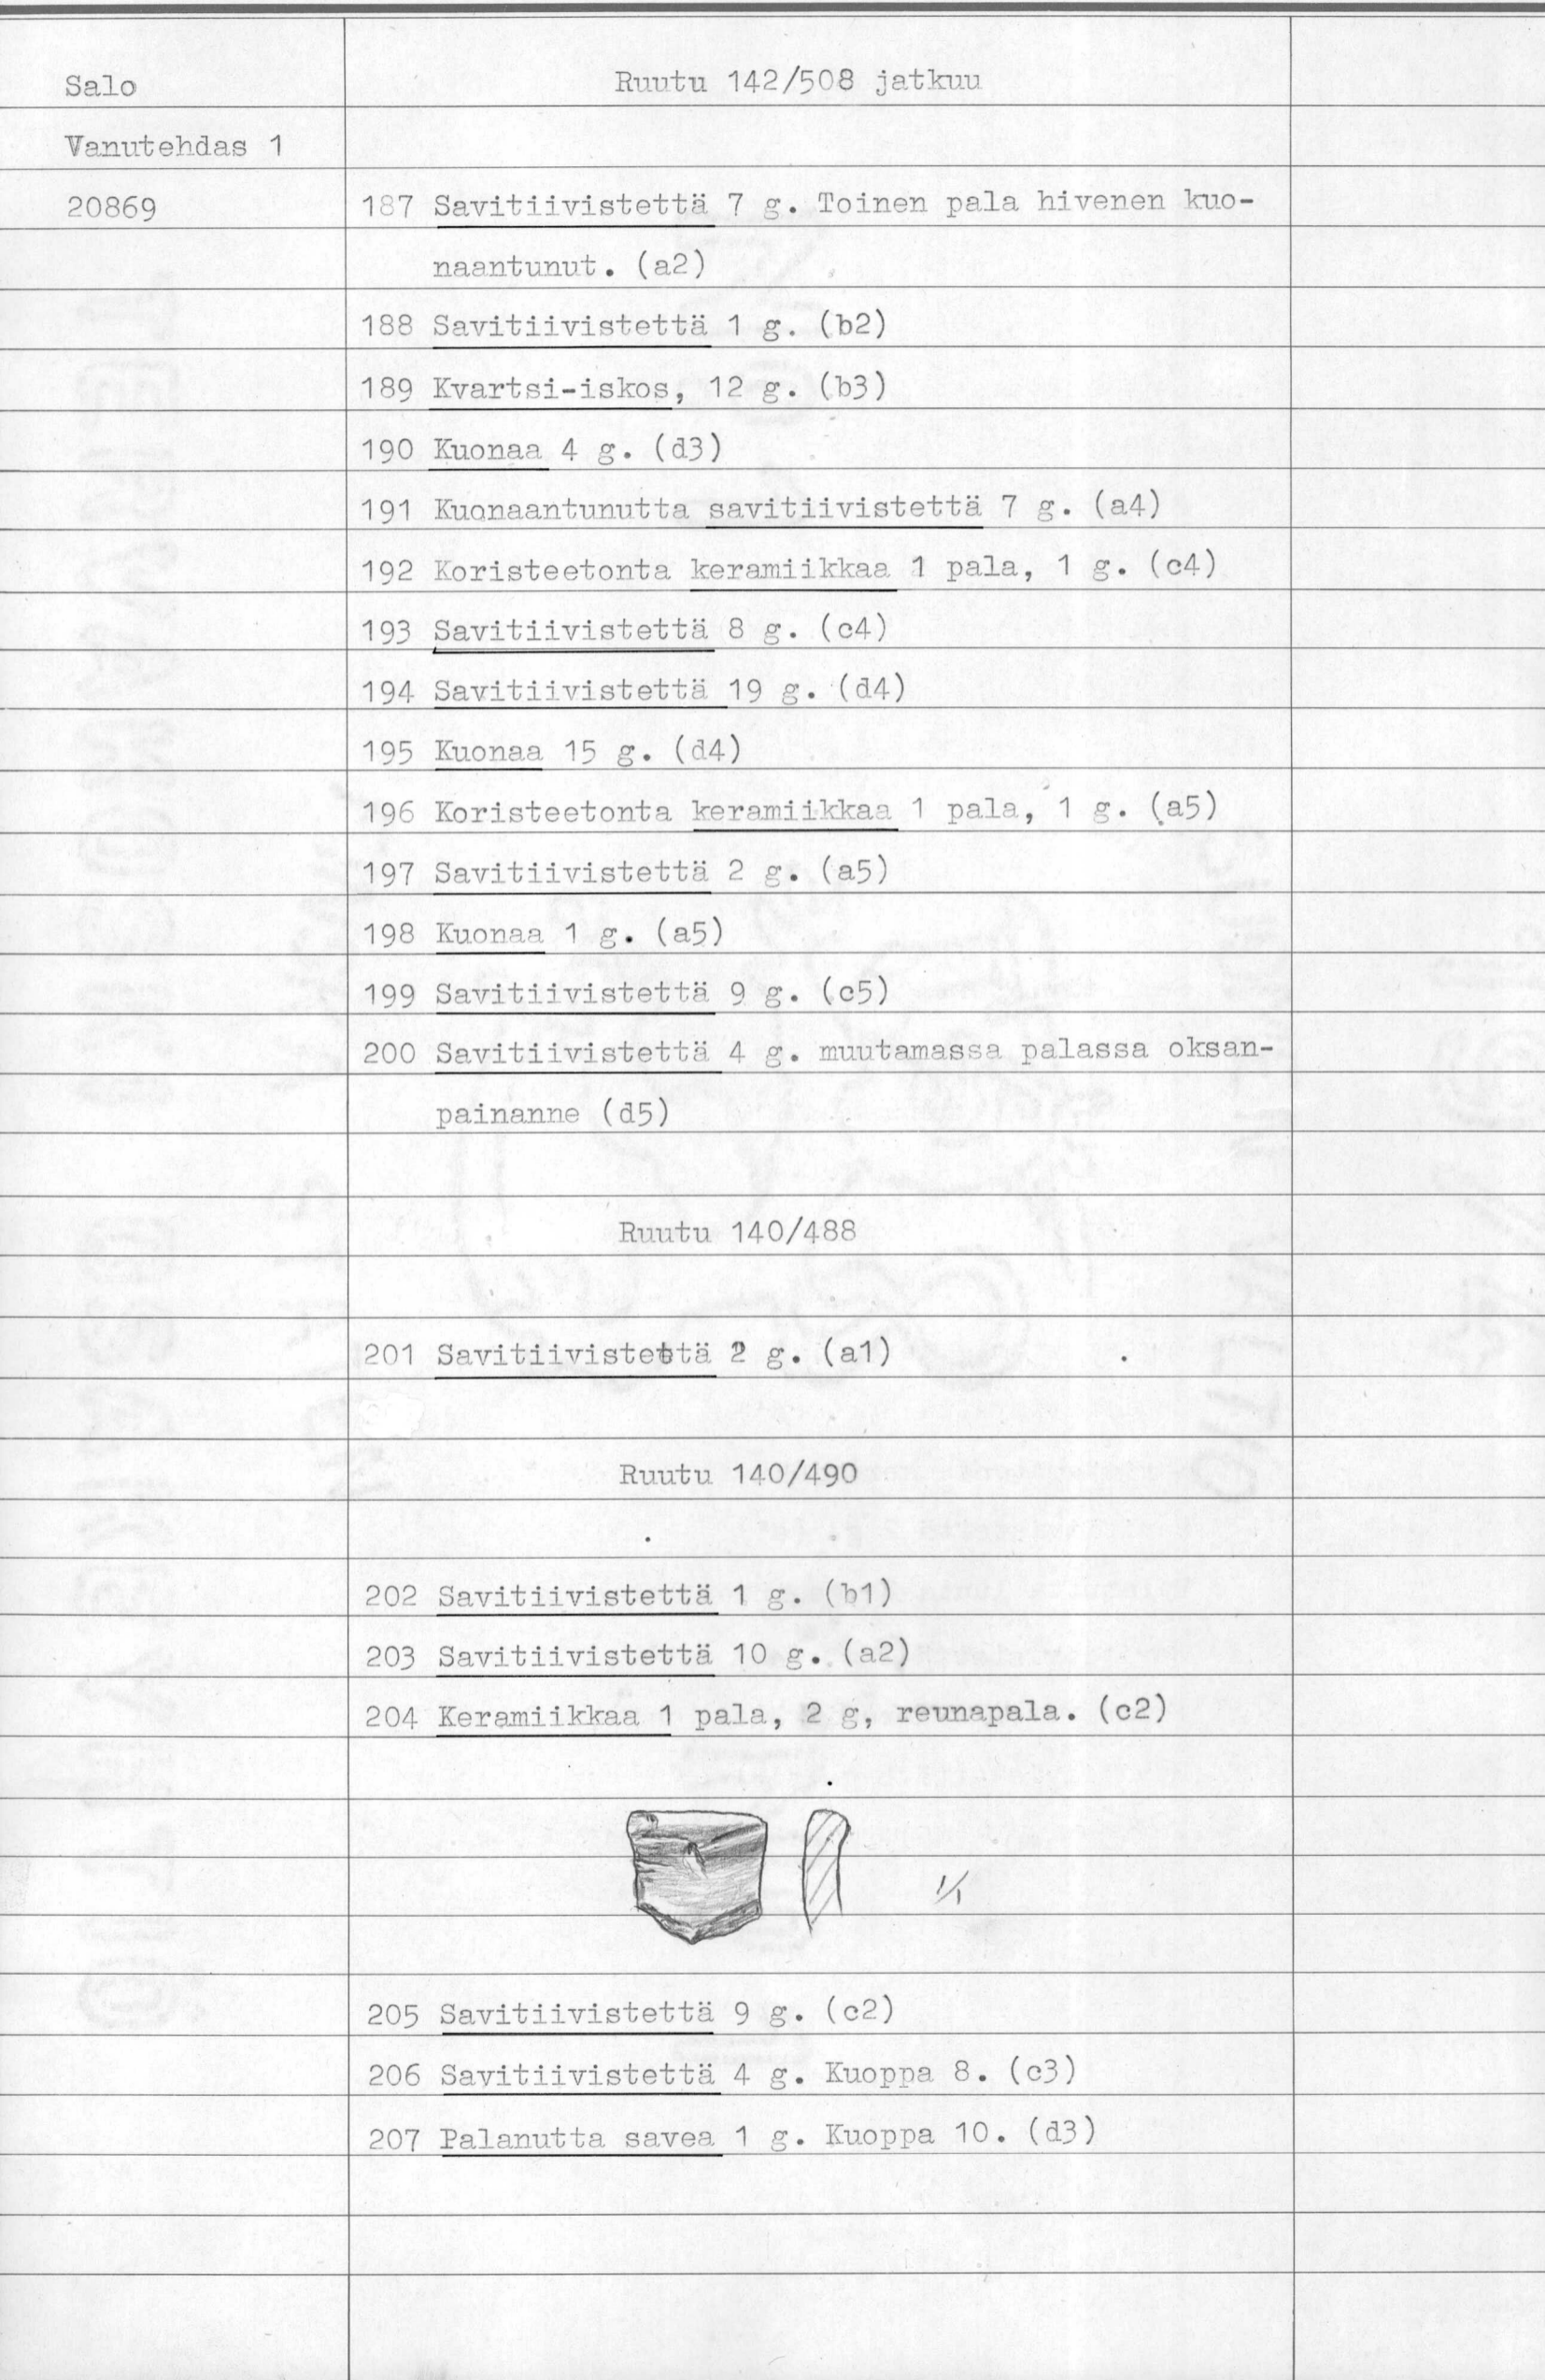 Salo
Ruutu 142/508 jatkuu
Vanutehdas 1
20869
187 Savitiivistettä 7 g. Toinen pala hivenen kuo-
naantunut. (a2)
188 Savitiivistettä 1 g. (b2)
189 Kvartsi-iskos, 12 g. (b3)
190 Kuonaa 4 g. (d3)
191 Kuonaantunutta savitiivistettä 7 g. (a4)
192 Koristeetonta keramiikkaa 1 pala, 1 g. (c4)
193 Savitiivistettä 8 g. (c4)
194 Savitiivistettä 19 g. (d4)
195 Kuonaa 15 g. (d4)
196 Koristeetonta keramiikkaa 1 pala, 1 g. (a5)
197 Savitiivistettä 2 g. (a5)
198 Kuonaa 1 g. (a5)
199 Savitiivistettä 9 g. (c5)
200 Savitiivistettä 4 g. muutamassa palassa oksan-
painanne (d5)
Ruutu 140/488
201 Savitiivistettä 2 g. (a1)
Ruutu 140/490
202 Savitiivistettä 1 g. (b1)
203 Savitiivistettä 10 g. (a2)
204 Keramiikkaa 1 pala, 2 g, reunapala. (c2)
1/1
205 Savitiivistettä 9 g. (c2)
206 Savitiivistettä 4 g. Kuoppa 8. (c3)
207 Palanutta savea 1 g. Kuoppa 10. (d3)